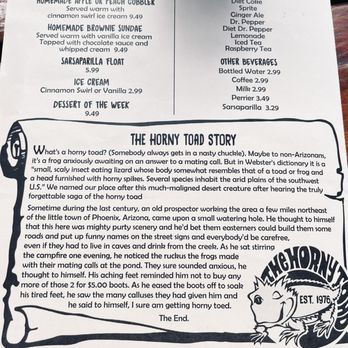 HOMEMADE APPLE OR PEACH COBBLER
Served warm with
cinnamon swirl ice cream 9.49
HOMEMADE BROWNIE SUNDAE
Served warm with vanilla ice cream
Topped with chocolate sauce and
whipped cream 9.49
SARSAPARILLA FLOAT
5.99
ICE CREAM
Cinnamon Swirl or Vanilla 2.99
DESSERT OF THE WEEK
9.49
Diet Coke
Sprite
Ginger Ale
Dr. Pepper
Diet Dr. Pepper
Lemonade
Iced Tea
Raspberry Tea
OTHER BEVERAGES
Bottled Water 2.99
Coffee 2.99
Milk 2.99
Perrier 3.49
Sarsaparilla 3.29
THE HORNY TOAD STORY
What's a horny toad? (Somebody always gets in a nasty chuckle). Maybe to non-Arizonans,
it's a frog anxiously awaiting on an answer to a mating call. But in Webster's dictionary it is a
"small, scaly insect eating lizard whose body somewhat resembles that of a toad or frog and
a head furnished with horny spikes. Several species inhabit the arid plains of the southwest
U.S." We named our place after this much-maligned desert creature after hearing the truly
forgettable saga of the horny toad
Sometime during the last century, an old prospector working the area a few miles northeast
of the little town of Phoenix, Arizona, came upon a small watering hole. He thought to himself
that this here was mighty purty scenery and he'd bet them easteners could build them some
roads and put up funny names on the street signs and everybody'd be carefree,
even if they had to live in caves and drink from the creek. As he sat stirring
the campfire one evening, he noticed the ruckus the frogs made
with their mating calls at the pond. They sure sounded anxious, he
thought to himself. His aching feet reminded him not to buy any
more of those 2 for $5.00 boots. As he eased the boots off to soak
his tired feet, he saw the many calluses they had given him and
he said to himself, I sure am getting horny toad.
The End.
THE HORNY
EST. 1976